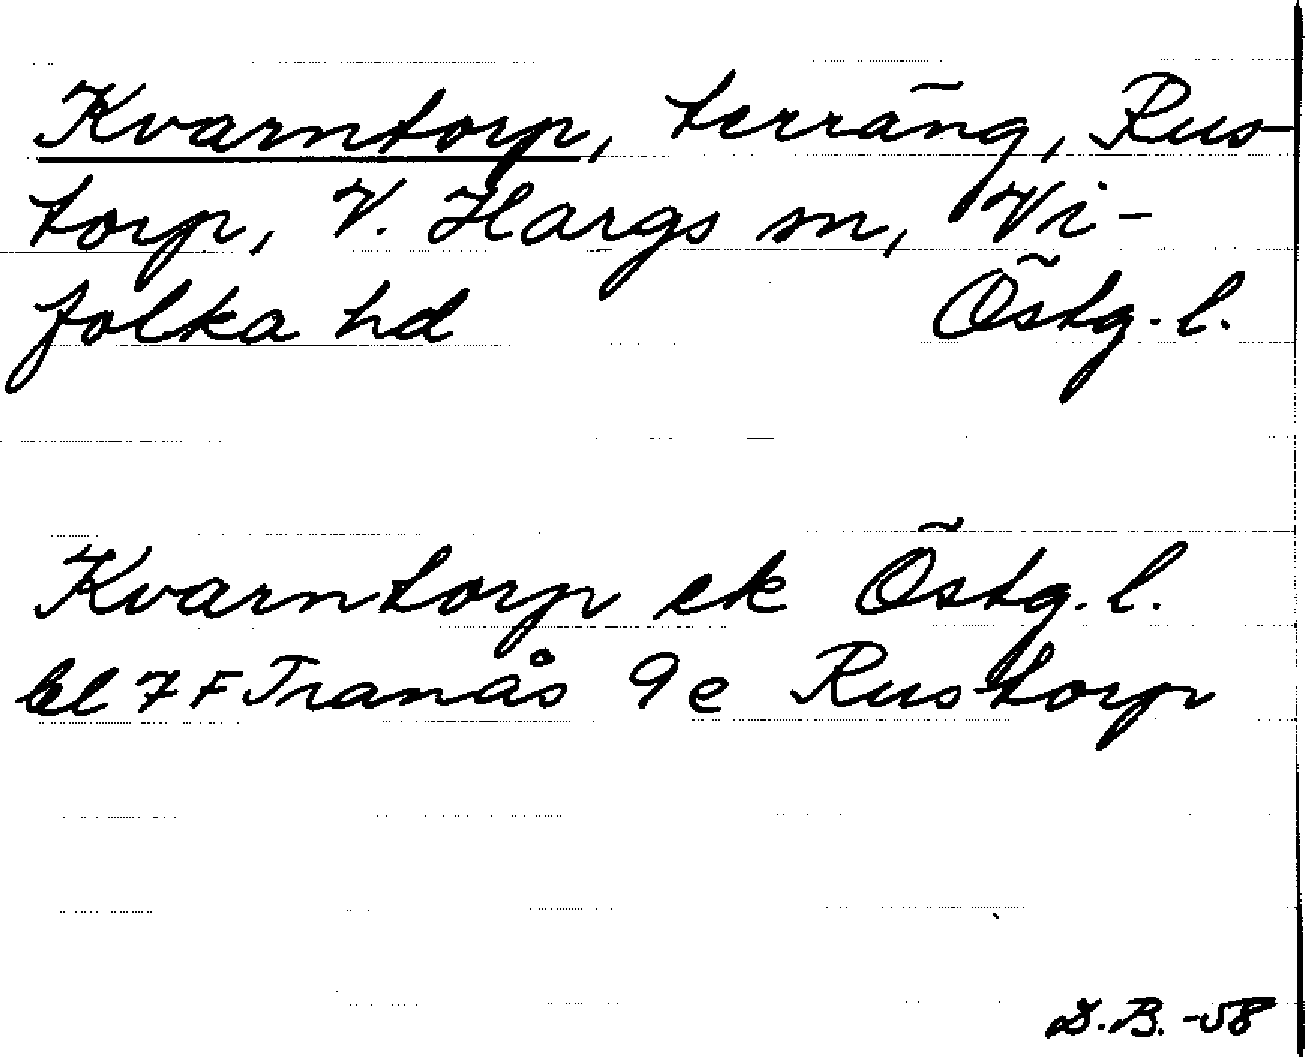 Kvarntorp, terräng, Rus-
torp, V. Hargs sn, Vi-
folka hd Östg. l.
Kvarntorp ek Östg. l.
bl 7 F Tranås 9 e Rustorp
D.B. -58